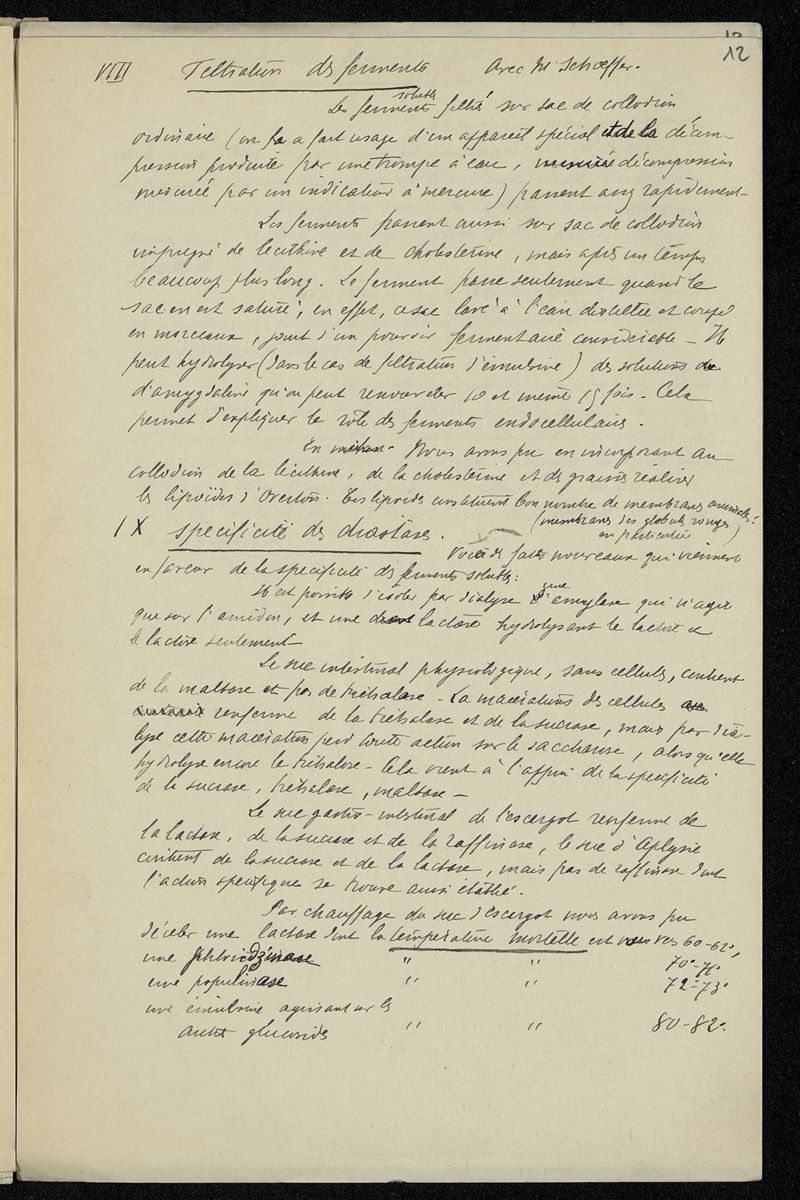 12
VIII Filtration des ferments Avec Mr Schaeffer.
Les ferments solubles filtrés sur sac de collodion
ordinaire (on a fait usage d'un appareil spécial et de la décom-
pression produite par une trompe à eau, décompression
mesurée par un indicateur à mercure) passent assez rapidement.
Les ferments passent aussi sur sac de collodion
imprégné de lécithine et de cholestérine, mais après un temps
beaucoup plus long. Le ferment passe seulement quand le
sac en est saturé; en effet, ce sac lavé à l'eau distillée et coupé
en morceaux, jouit d'un pouvoir fermentaire considérable - Il
peut hydrolyser (dans le cas de filtration d'émulsine) des solutions
d'amygdaline qu'on peut renouveler 10 et même 15 fois. Cela
permet d'expliquer le rôle des ferments endocellulaires.
En Nous avons pu en incorporant au
collodion de la lécithine, de la cholestérine et des graisses réaliser
les lipoïdes d'Overton. Ces lipoïdes constituent bon nombre de membranes animales.
(membranes des globules rouges
en particulier)
IX Spécificité des diastases.
Voici des faits nouveaux qui viennent
en faveur de la spécificité des ferments solubles:
Il est possible d'isoler par dialyse une amylase qui n'agit
que sur l'amidon, et une lactase hydrolysant le lactose et
le lactose seulement
Le suc intestinal physiologique, sans cellules, contient
de la maltase et pas de tréhalase - La macération des cellules
renferme de la tréhalase et de la sucrase, mais par dia-
lyse cette macération perd toute action sur le saccharose, alors qu'elle
hydrolyse encore le tréhalose - Cela vient à l'appui de la spécificité
de la sucrase, tréhalase, maltase -
Le suc gastro-intestinal de l'escargot renferme de
la lactase, de la sucrase et de la raffinase, le suc d'Aplysie
contient de la sucrase et de la lactase, mais pas de raffinase dont
l'action spécifique se trouve ainsi établie.
Par chauffage du suc d'escargot nous avons pu
déceler une lactase dont la température mortelle est vers 60-62°,
une phloridzinase " " 70°-71°
une populinase " " 72°-73°
une émulsine agissant sur les
autres glucosides " " 80-82°